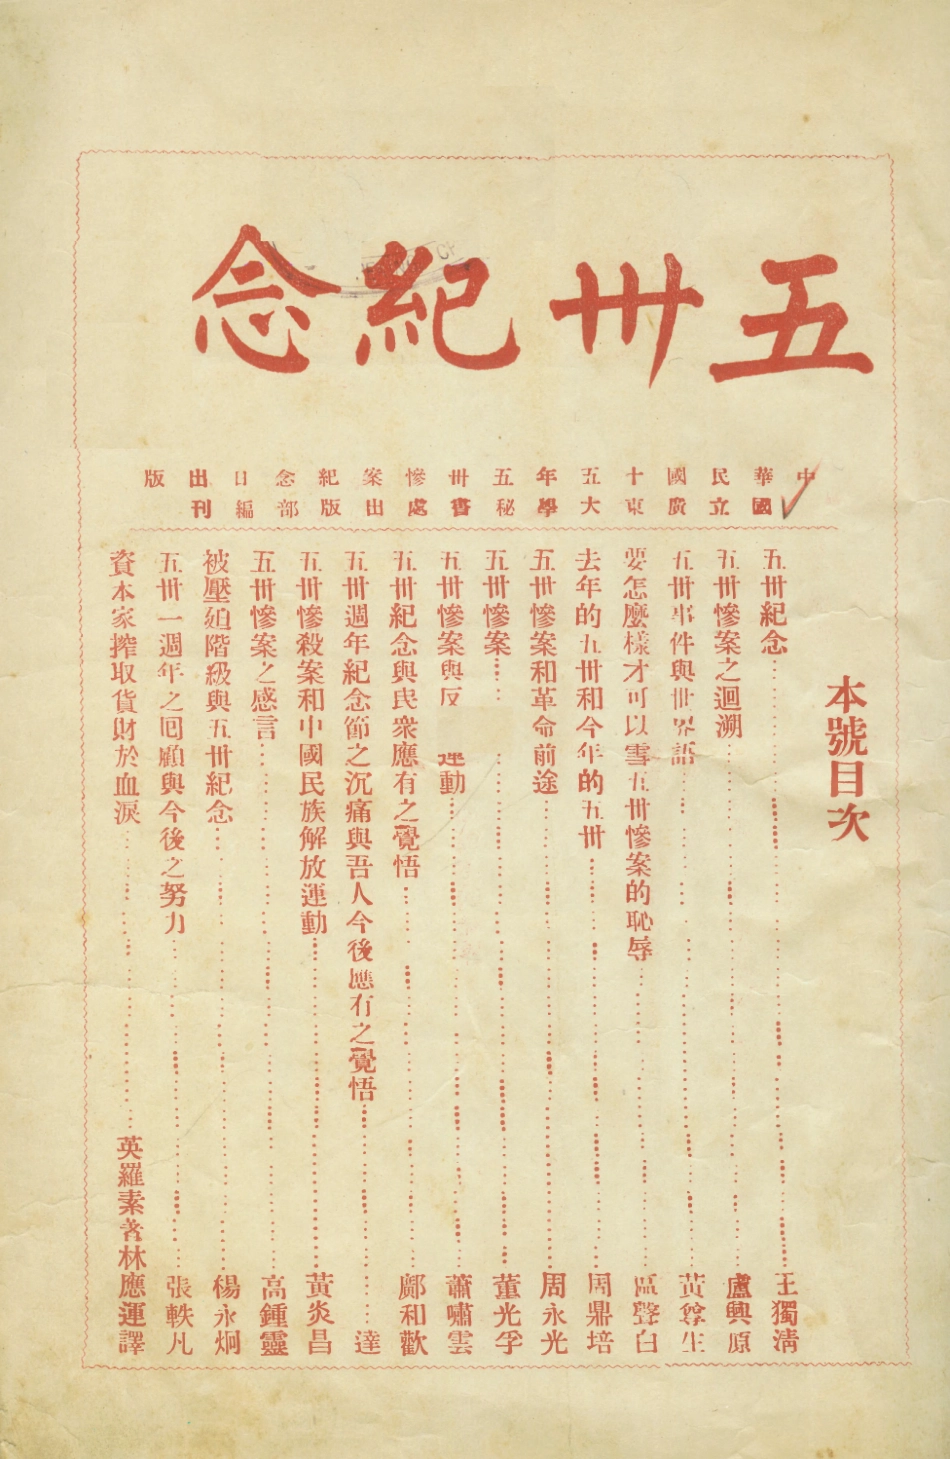 五卅紀念
中華民國十五年五卅慘案紀念日出版
國立廣東大學秘書處出版部編刊
本號目次
五卅紀念⋯⋯王獨清
五卅慘案之迴溯⋯⋯盧興原
五卅事件與世界語⋯⋯黄尊生
要怎麼樣才可以雪五卅慘案的恥辱⋯⋯區聲白
去年的五卅和今年的五卅⋯⋯周鼎培
五卅慘案和革命前途⋯⋯周永光
五卅慘案⋯⋯董光孚
五卅慘案與反 運動⋯⋯蕭嘯雲
五卅紀念與民衆應有之覺悟⋯⋯鄺和歡
五卅週年紀念節之沉痛與吾人今後應有之覺悟⋯⋯達
五卅慘殺案和中國民族解放運動⋯⋯黃炎昌
五卅慘案之感言⋯⋯高鍾靈
被壓廹階級與五卅紀念⋯⋯楊永炯
五卅一週年之囘顧與今後之努力⋯⋯張軼凡
資本家搾取貨財於血淚⋯⋯英羅素著林應運譯